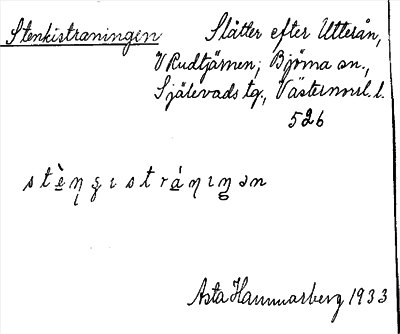 Stenkistraningen Slåtter efter Utterån,
V Rudtjärnen; Björna sn.,
Själevads tg., Västernorrl. l.
526
Asta Hammarberg 1933